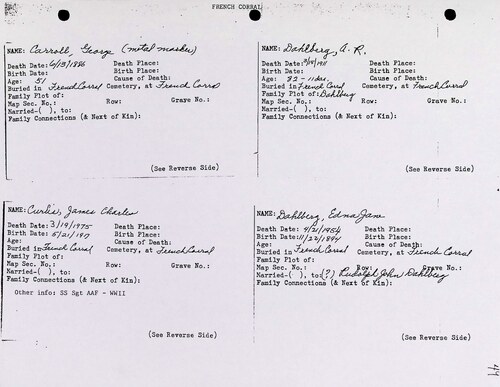 FRENCH CORRAL
NAME: Carroll, George (metal marker)
Death Date: 6/13/1886 Death Place:
Birth Date: Birth Place:
Age: 51 Cause of Death:
Buried in French Corral Cemetery, at French Corral
Family Plot of:
Map Sec. No.: Row: Grave No.:
Married-( ), to:
Family Connections (& Next of Kin):
(See Reverse Side)
NAME: Dahlberg, A. R.
Death Date: Death Place:
Birth Date: Birth Place:
Age: 82 - 11 das. Cause of Death:
Buried in French Corral Cemetery, at French Corral
Family Plot of: Dahlberg
Map Sec. No.: Row: Grave No.:
Married-( ), to:
Family Connections (& Next of Kin):
(See Reverse Side)
NAME: Curlis, James Charles
Death Date: 3/19/1975 Death Place:
Birth Date: 5/21/1917 Birth Place:
Age: Cause of Death:
Buried in French Corral Cemetery, at French Corral
Family Plot of:
Map Sec. No.: Row: Grave No.:
Married-( ), to:
Family Connections (& Next of Kin):
Other info: SS Sgt AAF - WWII
(See Reverse Side)
NAME: Dahlberg, Edna Jane
Death Date: 4/21/1954 Death Place:
Birth Date: 11/22/1894 Birth Place:
Age: Cause of Death:
Buried in French Corral Cemetery, at French Corral
Family Plot of:
Map Sec. No.: Row: Grave No.:
Married-( ), to: (?) Rudolph John Dahlberg
Family Connections (& Next of Kin):
(See Reverse Side)